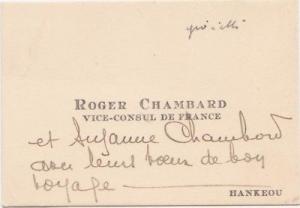 ROGER CHAMBARD
VICE-CONSUL DE FRANCE
et Suzanne Chambard
avec leurs vœux de bon
voyage
HANKEOU